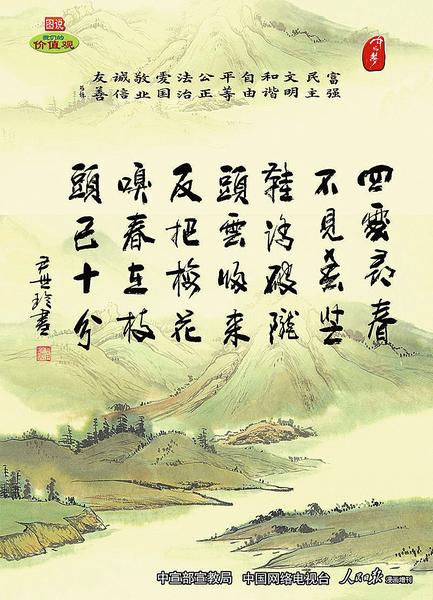 图说
我们的
价值观
中国梦
富强
民主
文明
和谐
自由
平等
公正
法治
爱国
敬业
诚信
友善
四處尋春
不見春芒
鞋踏破隴
頭雲歸來
反把梅花
嗅春在枝
頭已十分
尹世玲書
中宣部宣教局 中国网络电视台 人民日报 漫画增刊